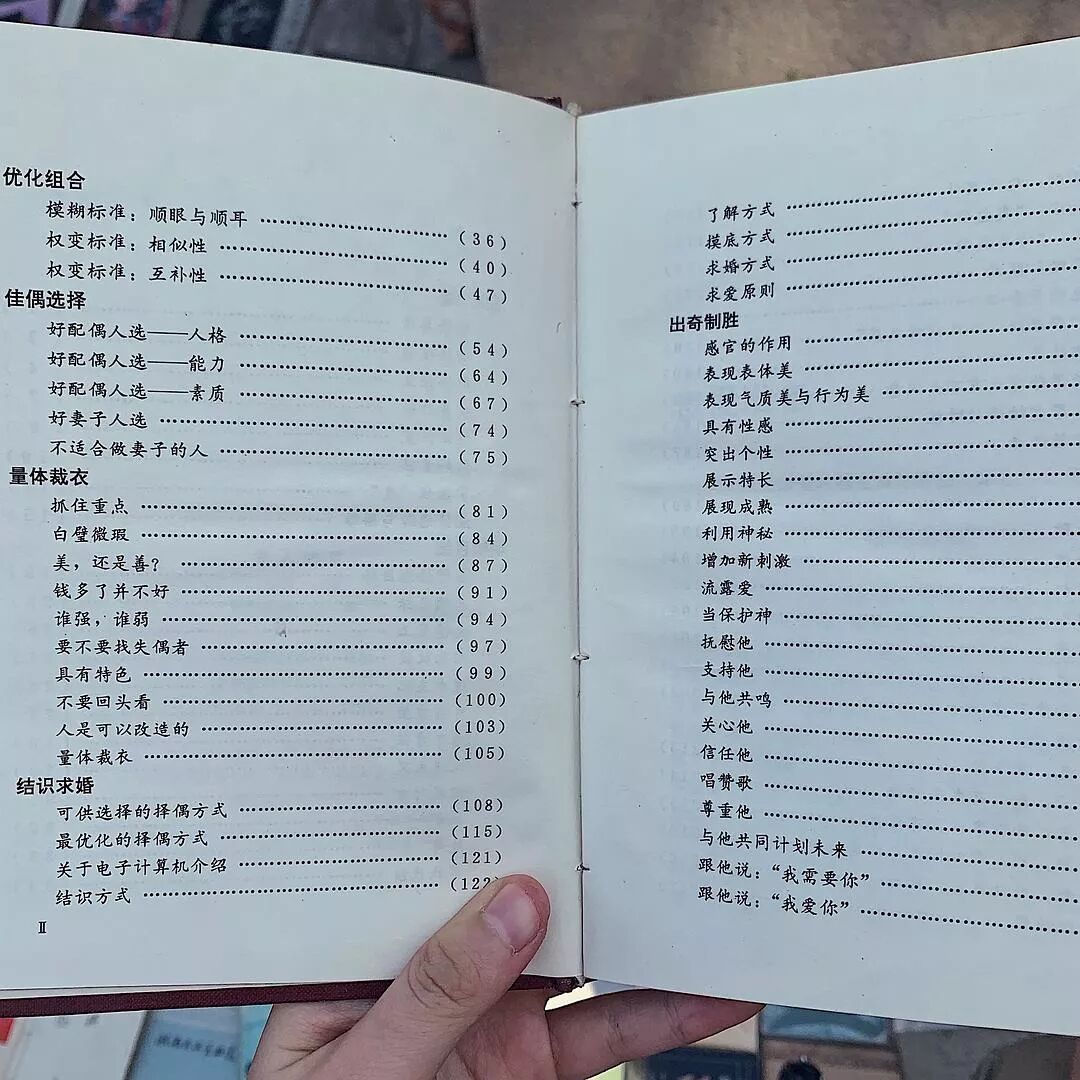 优化组合
模糊标准：顺眼与顺耳 ……………………（36）
权变标准：相似性 ……………………（40）
权变标准：互补性 ……………………（47）
佳偶选择
好配偶人选——人格 ……………………（54）
好配偶人选——能力 ……………………（64）
好配偶人选——素质 ……………………（67）
好妻子人选 ……………………（74）
不适合做妻子的人 ……………………（75）
量体裁衣
抓住重点 ……………………（81）
白璧微瑕 ……………………（84）
美，还是善？ ……………………（87）
钱多了并不好 ……………………（91）
谁强，谁弱 ……………………（94）
要不要找失偶者 ……………………（97）
具有特色 ……………………（99）
不要回头看 ……………………（100）
人是可以改造的 ……………………（103）
量体裁衣 ……………………（105）
结识求婚
可供选择的择偶方式 ……………………（108）
最优化的择偶方式 ……………………（115）
关于电子计算机介绍 ……………………（121）
结识方式 ……………………（122）
Ⅱ
了解方式 ……………………
摸底方式 ……………………
求婚方式 ……………………
求爱原则 ……………………
出奇制胜
感官的作用 ……………………
表现表体美 ……………………
表现气质美与行为美 ……………………
具有性感 ……………………
突出个性 ……………………
展示特长 ……………………
展现成熟 ……………………
利用神秘 ……………………
增加新刺激 ……………………
流露爱 ……………………
当保护神 ……………………
抚慰他 ……………………
支持他 ……………………
与他共鸣 ……………………
关心他 ……………………
信任他 ……………………
唱赞歌 ……………………
尊重他 ……………………
与他共同计划未来 ……………………
跟他说：“我需要你” ……………………
跟他说：“我爱你” ……………………